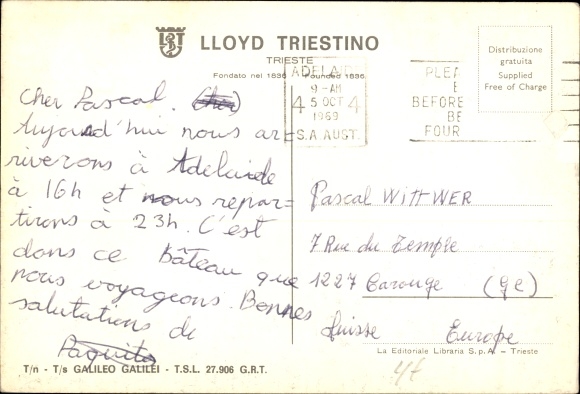 LLOYD TRIESTINO
TRIESTE
Fondato nel 1836 Founded 1836
Distribuzione
gratuita
Supplied
Free of Charge
ADELAIDE
9-AM
4 5 OCT 4
1969
S.A. AUST.
BEFORE
BE
FOUR
Cher Pascal. (Cher)
Aujourd'hui nous ar=
riverons à Adelaide
à 16h et nous repar=
tirons à 23h. C'est
dans ce bâteau que
nous voyageons. Bonnes
salutations de
Paquito
Pascal WITTWER
7 Rue du Temple
1227 Carouge (Ge)
Suisse Europe
La Editoriale Libraria S.p.A. – Trieste
T/n - T/s GALILEO GALILEI - T.S.L. 27.906 G.R.T.